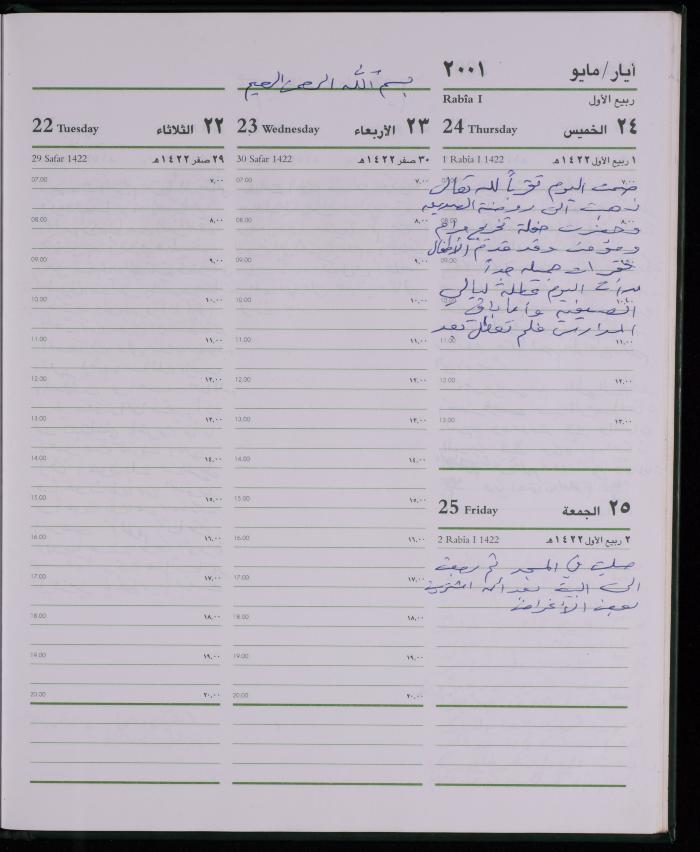 أيار/مايو ٢٠٠١
بسم الله الرحمن الرحيم
Rabîa I ربيع الأول
22 Tuesday الثلاثاء ٢٢
23 Wednesday الأربعاء ٢٣
24 Thursday الخميس ٢٤
29 Safar 1422 ٢٩ صفر ١٤٢٢هـ
30 Safar 1422 ٣٠ صفر ١٤٢٢هـ
1 Rabîa I 1422 ١ ربيع الأول ١٤٢٢هـ
07.00 ٧,٠٠
08.00 ٨,٠٠
09.00 ٩,٠٠
10.00 ١٠,٠٠
11.00 ١١,٠٠
12.00 ١٢,٠٠
13.00 ١٣,٠٠
14.00 ١٤,٠٠
15.00 ١٥,٠٠
16.00 ١٦,٠٠
17.00 ١٧,٠٠
18.00 ١٨,٠٠
19.00 ١٩,٠٠
20.00 ٢٠,٠٠
07.00 ٧,٠٠
08.00 ٨,٠٠
09.00 ٩,٠٠
10.00 ١٠,٠٠
11.00 ١١,٠٠
12.00 ١٢,٠٠
13.00 ١٣,٠٠
14.00 ١٤,٠٠
15.00 ١٥,٠٠
16.00 ١٦,٠٠
17.00 ١٧,٠٠
18.00 ١٨,٠٠
19.00 ١٩,٠٠
20.00 ٢٠,٠٠
صمت اليوم تقرباً لله تعالى
ذهبت الى روضة
وحضرت حفلة تخريج مرام
وقد قدم الأطفال
فقرات جميلة جداً
بدأت اليوم عطلة ليالي
الصيفية وأما باقي
المدارس فلم تعطل بعد
11.00 ١١,٠٠
12.00 ١٢,٠٠
13.00 ١٣,٠٠
25 Friday الجمعة ٢٥
2 Rabîa I 1422 ٢ ربيع الأول ١٤٢٢هـ
صليت في المسجد ثم رجعت
الى البيت بعد أن اشتريت
بعض الأغراض